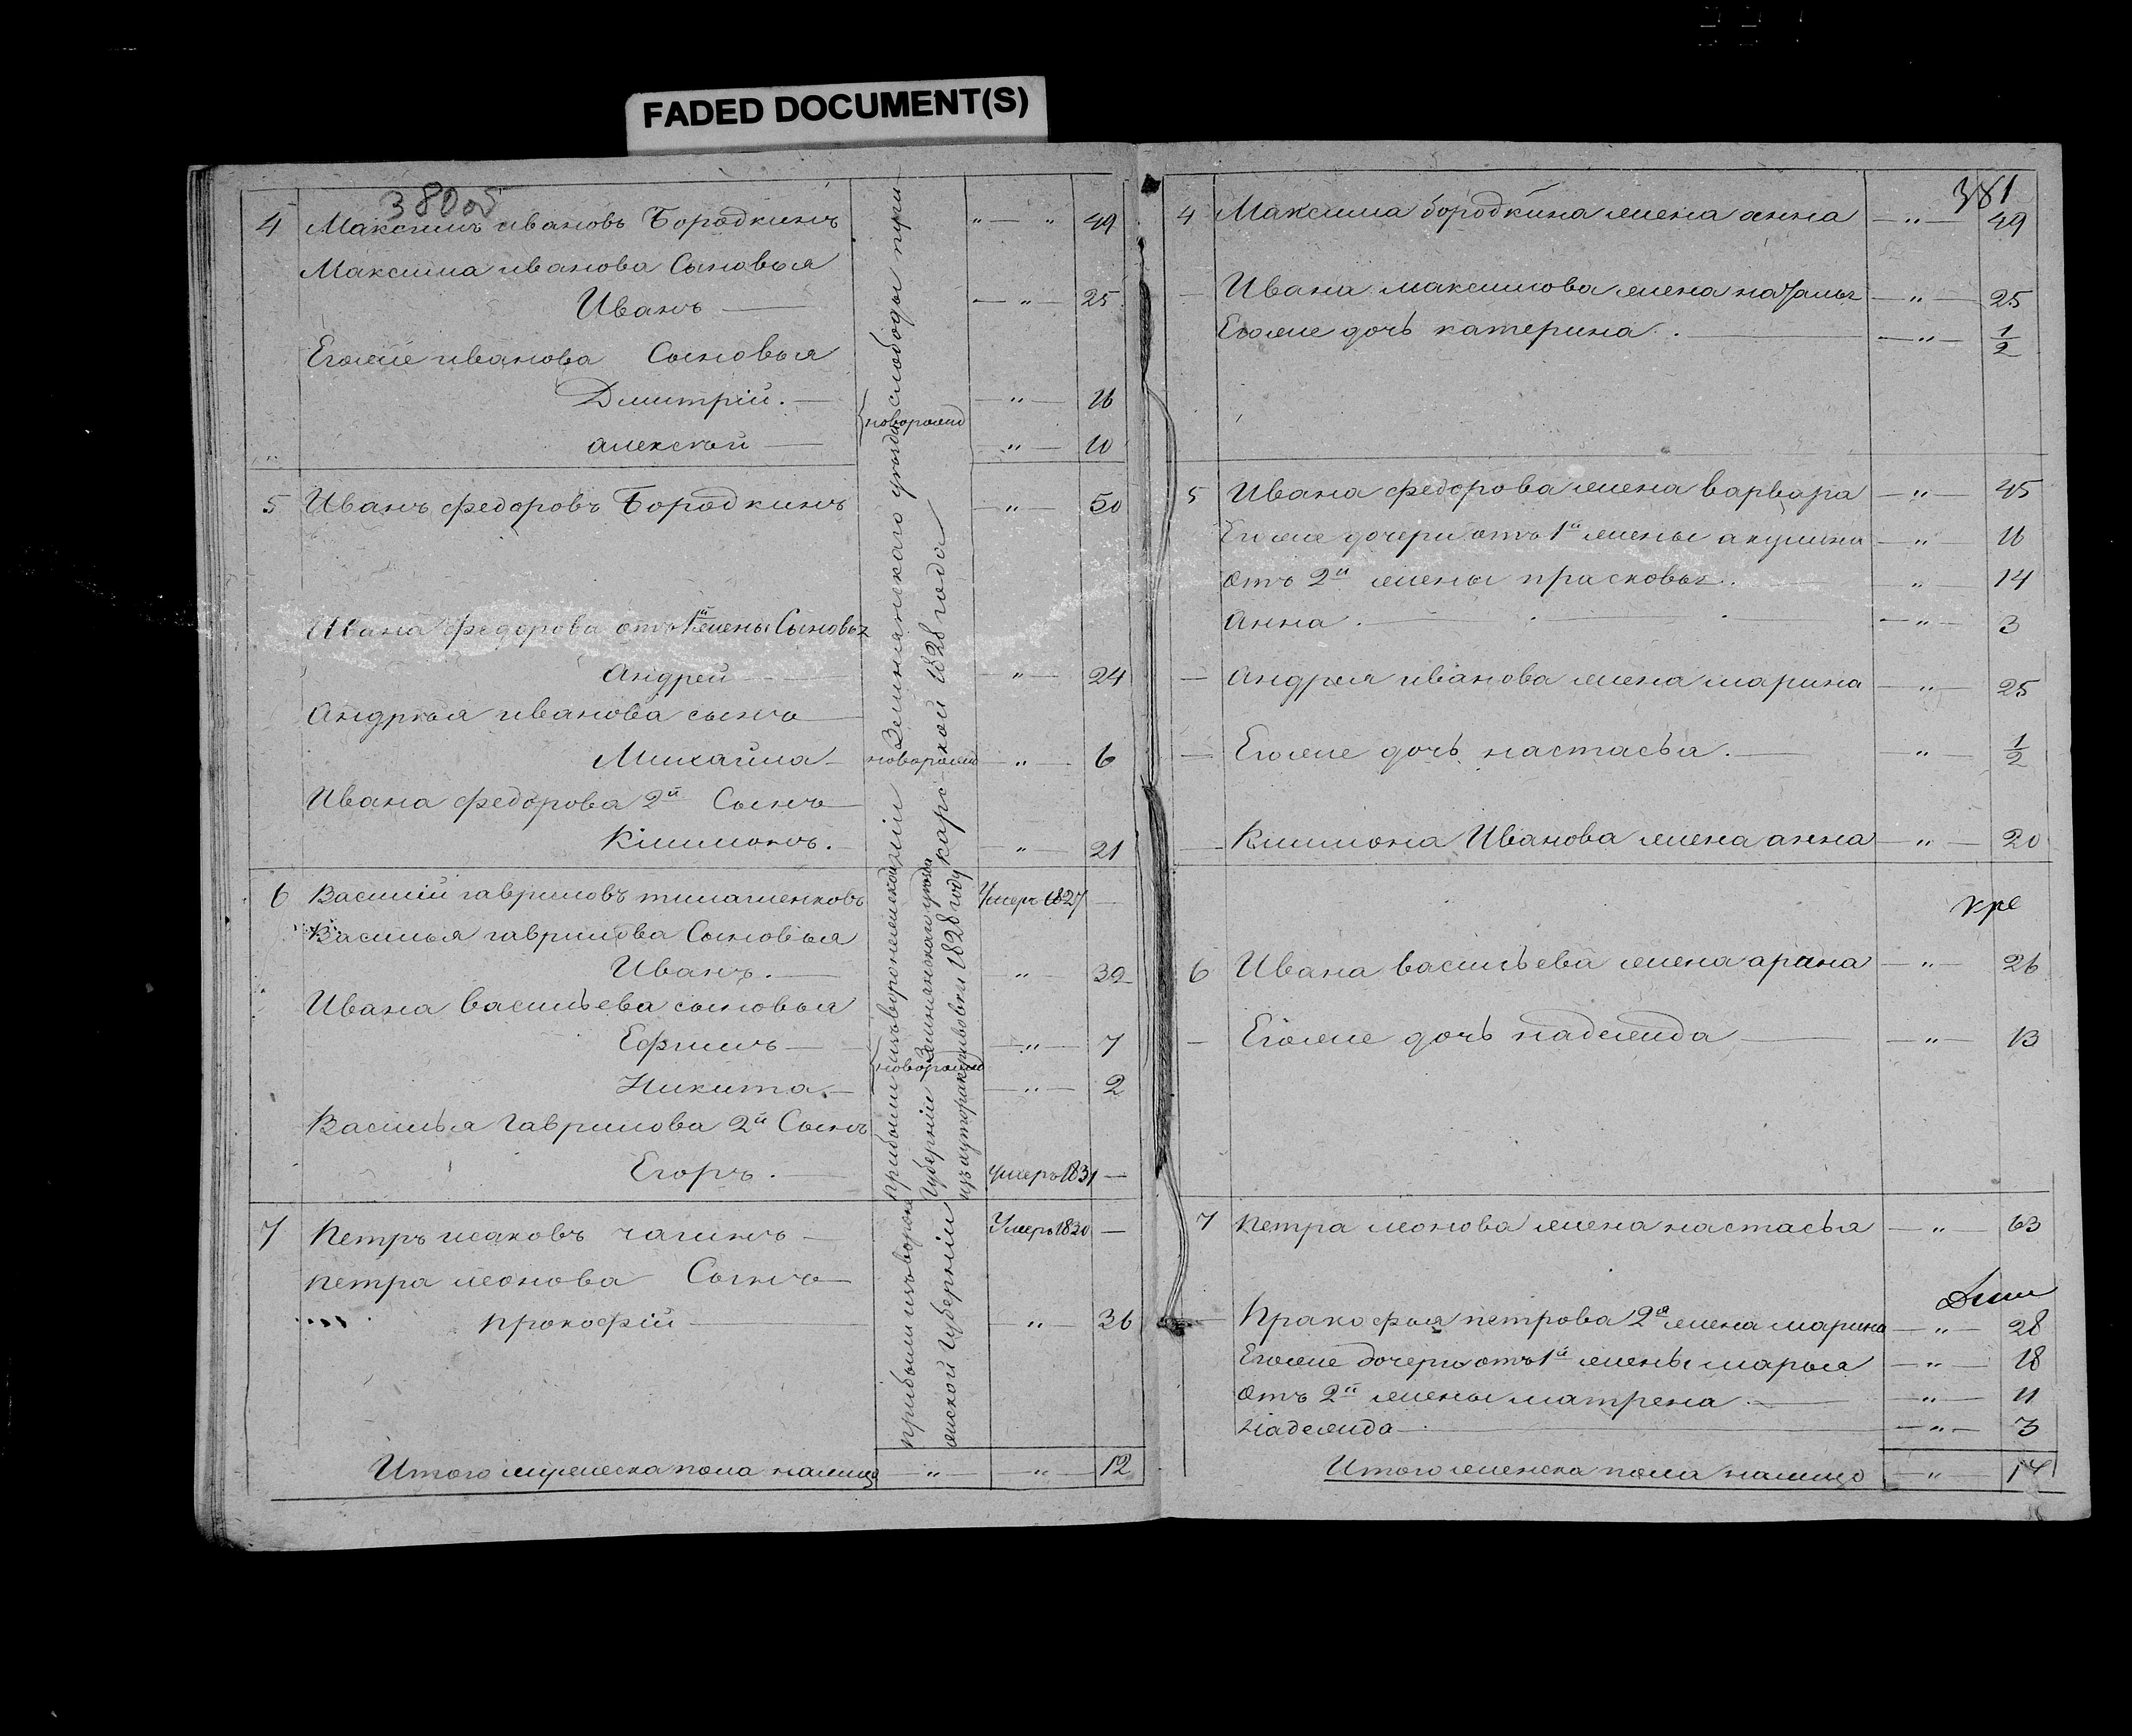 FADED DOCUMENT(S)
380об
4 Максимъ ивановъ Бородкинъ „ — „ 49
Максима иванова Сыновья
Иванъ — „ — 25
Егоже иванова Сыновья
Дмитрій. — „ — 16
новорожд
алексѣй — „ — 10
5 Иванъ федоровъ Бородкинъ — „ — 50
Ивана федорова отъ 1й жены Сыновья
Андрей — „ — 24
Андрѣя иванова сынъ
Михайла — новорожд — „ — 6
Ивана федорова 2й Сынъ
Климонъ. — „ — 21
6 Василій гавриловъ Умеръ 1827 —
Василья гаврилова Сыновья
Иванъ. — „ 32
Ивана васильева сыновья
Ефимъ — „ — 7
новорожд
Никита. — „ — 2
Василья Гаврилова 2й Сынъ
Егоръ. — умеръ 1831 —
7 Петръ исаковъ чагинъ — Умеръ 1830 —
петра Сынъ —
прокофій — „ — 36
Землянскаго уѣзда слободы
1828 года
прибыли изъ воронежской
Губерніи Землянскаго уѣзда
1828 году
прибыли изъ ворон
ежской Губерніи
Итого мужеска пола налицо — „ — „ — 12
381
4 Максима бородкина жена анна — „ — 49
— Ивана максимова жена наталья — „ — 25
Егоже дочь катерина. — „ — 1/2
5 Ивана федорова жена варвара — „ — 45
Егоже дочери отъ 1й жены акулина — „ — 16
отъ 2й жены прасковья. „ 14
Анна. — „ — 3
— Андрея иванова жена марина — „ — 25
— Егоже дочь настасья. — „ — 1/2
— Климона Иванова жена анна — „ — 20
кре
6 Ивана васильева жена арина — „ — 26
— Егоже дочь надежда — „ — 13
7 петра жена настасья — „ — 63
— Пракофья петрова 2я жена марина — „ — 28
Егоже дочери отъ 1й жены марья — „ — 18
отъ 2й жены матрена — „ — 11
надежда — „ — 3
Итого женска пола налицо — „ — 17